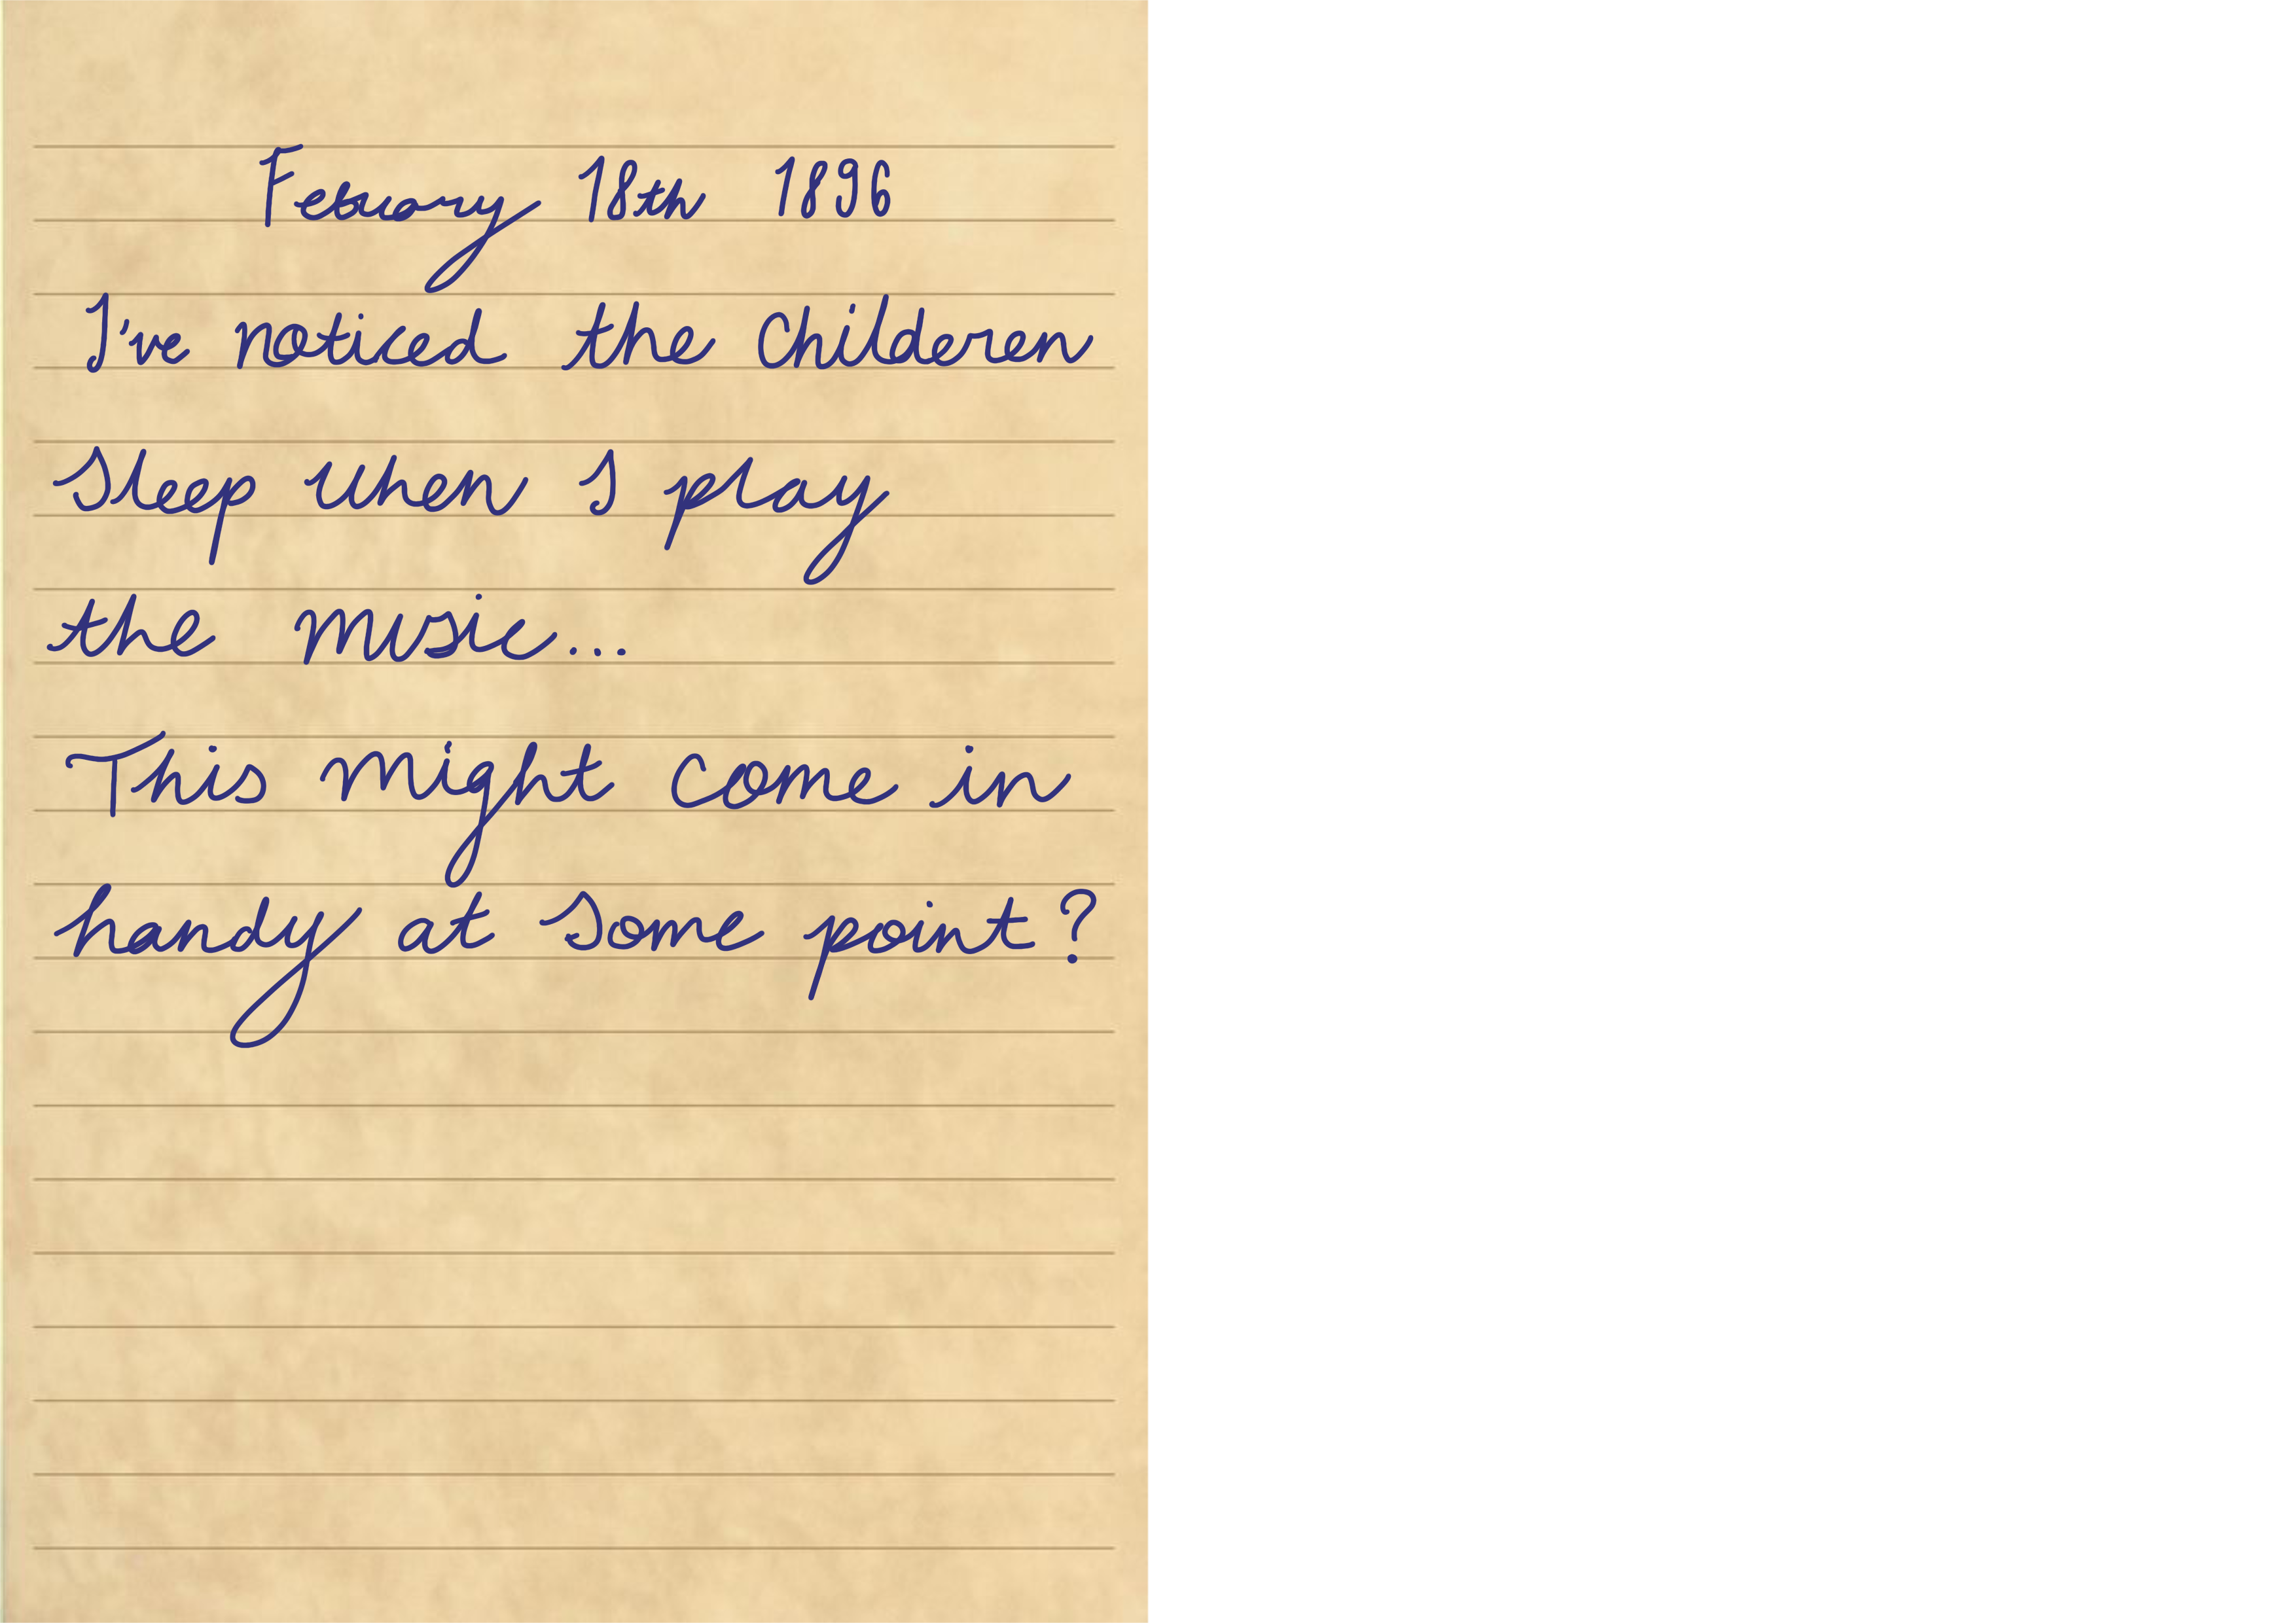 Febuary 18th 1896
I've noticed the Childeren
Sleep when I play
the music...
This might come in
handy at some point?